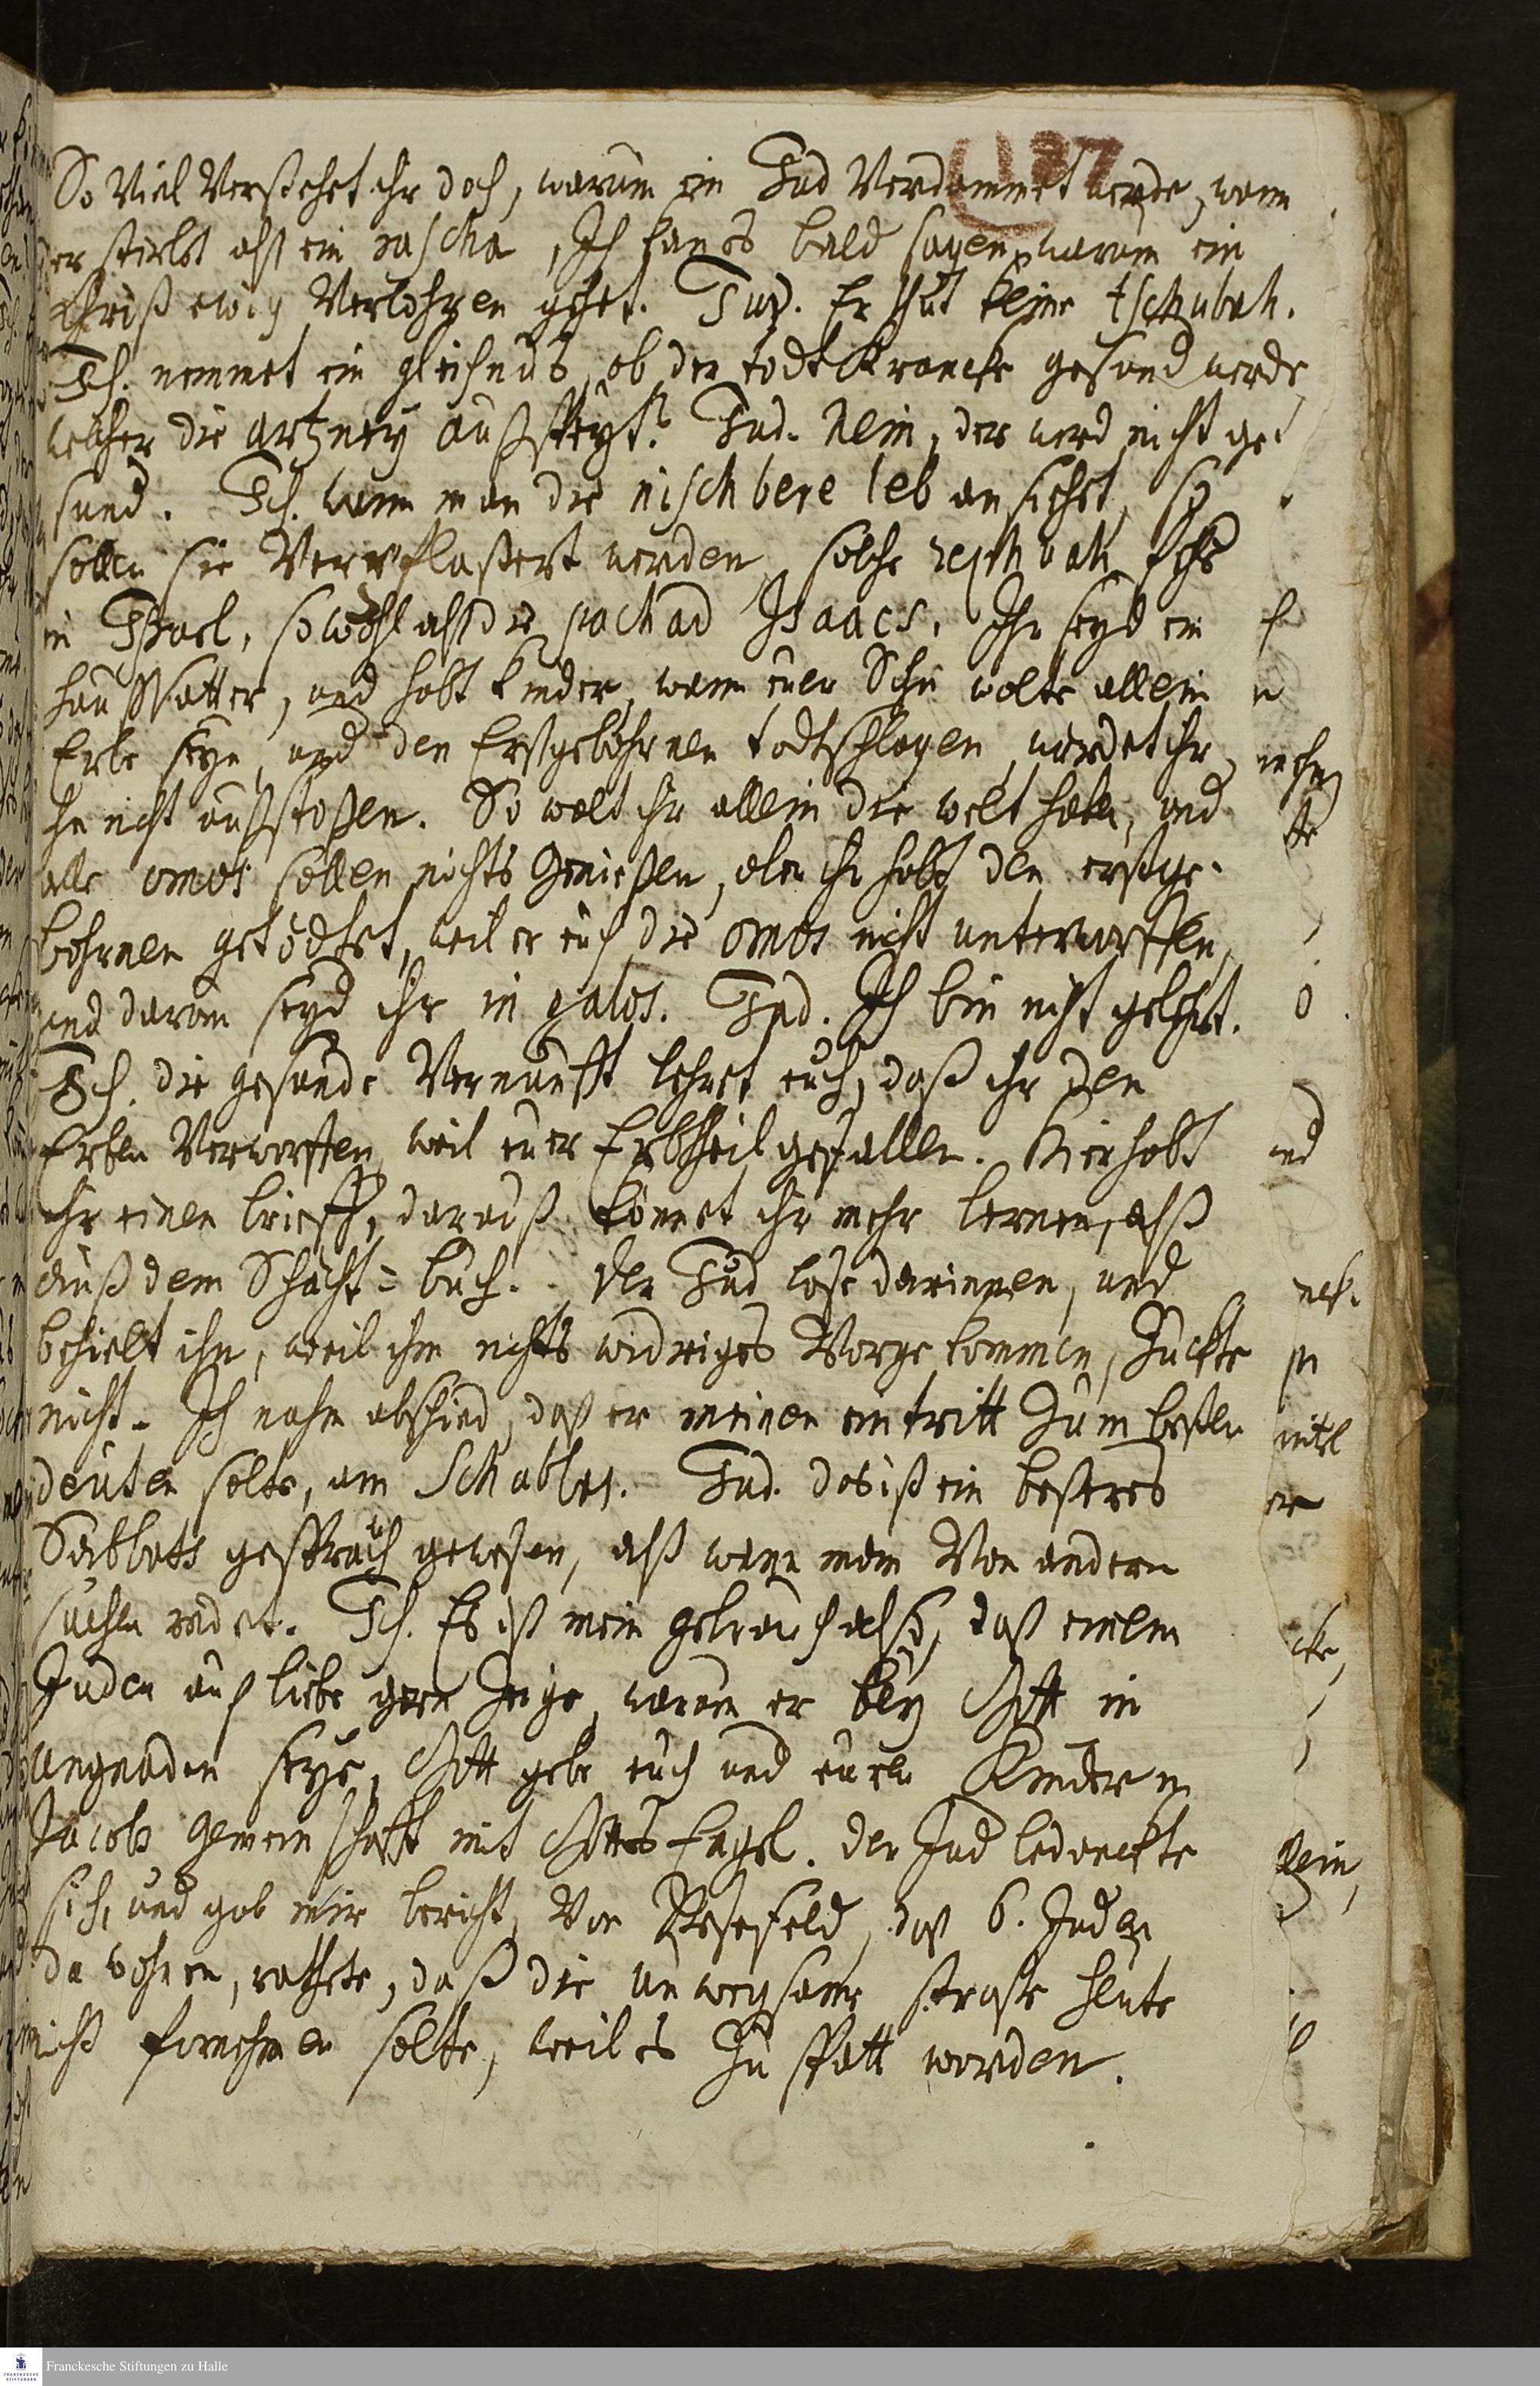 137
So viel verstehet ihr doch, warum ein Jud verdammet werde, wenn
er stirbt alß ein rascha, Ich kan es bald sagen, warum ein
Christ ewig verlohren gehet. Jud. Er thut keine tschubah.
Ich. nemmet ein gleichnüs, ob der todtkrancke gesund werde,
welcher die artzney außspeyt? Jud. Nein, der werd nicht ge-
sund. Ich. wenn man die nischbere leb ansiehet, so
sollen sie verpflastert werden, solche
in Israel, sowohl alß die pachad Isaacs. Ihr seyd ein
haußvatter, und habt kinder, wenn euer Sohn wolte allein
Erbe seyn, und den Erstgebohrnen todtschlagen, werdet ihr
ihn nicht außstoßen. So wolt ihr allein die welt haben, und
alle omos sollen nichts genießen, aber ihr habt den erstge-
bohrnen getödtet, weil er euch die omos nicht unterworffen,
und darum seyd ihr in galos. Jud. Ich bin nicht gelehrt.
Ich. die gesunde Vernunfft lehret euch, daß ihr den
Erben verworffen, weil euer Erbtheil gefallen. Hier habt
ihr einen brieff, darauß könnet ihr mehr lernen, alß
auß dem Schächt-buch. der Jud lase darinnen, und
behielt ihn, weil ihm nichts widriges vorgekommen, zuckte
nicht. Ich nahm abschied, daß er meinen eintritt zum besten
deuten solte, am Schabbes. Jud. das ist ein besseres
Sabbats gespräch gewesen, alß wenn man von andern
sachen redet. Ich. Es ist mein gebrauch also, daß einem
Juden auß liebe gern zeige, warum er bey Gott in
ungnaden seye, Gott gebe euch und euren Kindern
Jacobs gemeinschafft mit Gottes Engel. der Jud bedanckte
sich, und gab mir bericht, von daß 6. Juden
da wohnen, rathete, daß die unwegsame straße heute
nicht fornehmen solte, weil es zu spatt worden.
Franckesche Stiftungen zu Halle